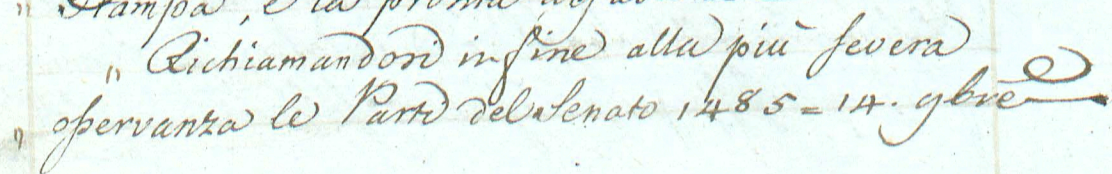 " Stampa, e la
" Richiamandosi in fine alla più severa
" osservanza le Parti del Senato 1485 = 14. 9bre